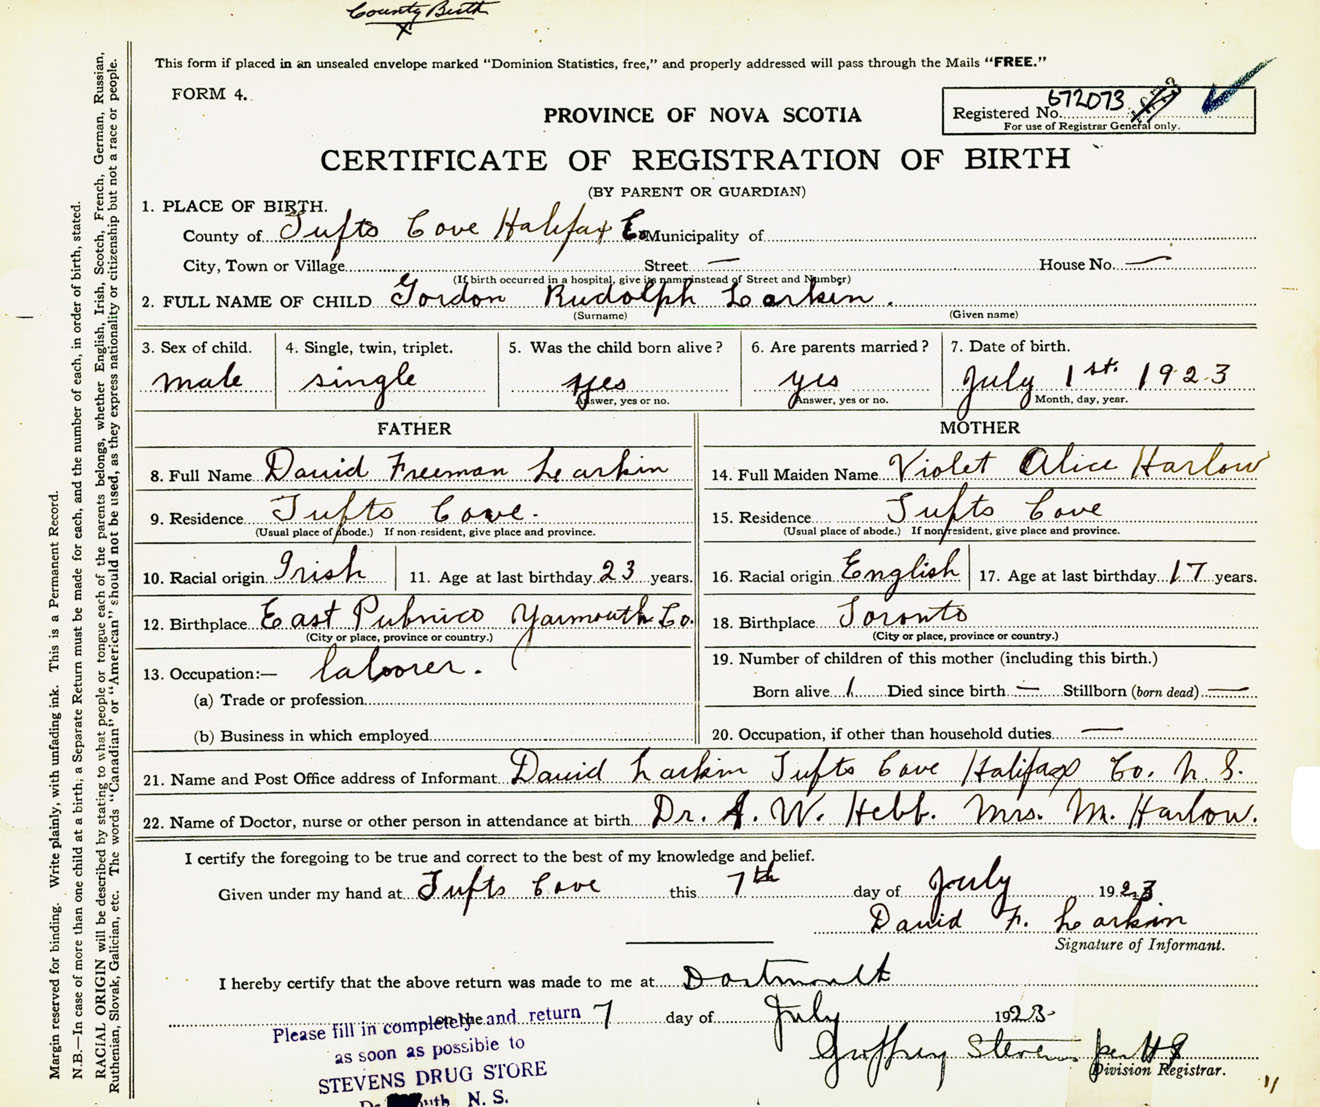 County Birth
X
This form if placed in an unsealed envelope marked "Dominion Statistics, free," and properly addressed will pass through the Mails "FREE."
FORM 4.
PROVINCE OF NOVA SCOTIA
Registered No. 672073
For use of Registrar General only.
CERTIFICATE OF REGISTRATION OF BIRTH
(BY PARENT OR GUARDIAN)
1. PLACE OF BIRTH.
County of Tufts Cove Halifax Co. Municipality of
City, Town or Village Street — House No. —
(If birth occurred in a hospital, give its name instead of Street and Number)
2. FULL NAME OF CHILD Gordon Rudolph Larkin.
(Surname) (Given name)
3. Sex of child. 4. Single, twin, triplet. 5. Was the child born alive? 6. Are parents married? 7. Date of birth.
male single yes yes July 1st. 1923
Answer, yes or no. Answer, yes or no. Month, day, year.
FATHER MOTHER
8. Full Name David Freeman Larkin 14. Full Maiden Name Violet Alice Harlow
9. Residence Tufts Cove. 15. Residence Tufts Cove
(Usual place of abode.) If non-resident, give place and province. (Usual place of abode.) If non-resident, give place and province.
10. Racial origin Irish 11. Age at last birthday 23 years. 16. Racial origin English 17. Age at last birthday 17 years.
12. Birthplace East Pubnico Yarmouth Co. 18. Birthplace Toronto
(City or place, province or country.) (City or place, province or country.)
13. Occupation:— laborer. 19. Number of children of this mother (including this birth.)
(a) Trade or profession Born alive 1 Died since birth — Stillborn (born dead) —
(b) Business in which employed 20. Occupation, if other than household duties —
21. Name and Post Office address of Informant David Larkin Tufts Cove Halifax Co. N. S.
22. Name of Doctor, nurse or other person in attendance at birth Dr. A. W. Hebb. Mrs. M. Harlow.
I certify the foregoing to be true and correct to the best of my knowledge and belief.
Given under my hand at Tufts Cove this 7th day of July 1923
David F. Larkin
Signature of Informant.
I hereby certify that the above return was made to me at Dartmouth
on the 7 day of July 1923
Please fill in completely and return
as soon as possible to
STEVENS DRUG STORE
N. S.
Geoffrey Stevens per
Division Registrar.
Margin reserved for binding. Write plainly, with unfading ink. This is a Permanent Record.
N.B.—In case of more than one child at a birth, a Separate Return must be made for each, and the number of each, in order of birth, stated.
RACIAL ORIGIN will be described by stating to what people or tongue each of the parents belongs, whether English, Irish, Scotch, French, German, Russian,
Ruthenian, Slovak, Galician, etc. The words "Canadian" or "American" should not be used, as they express nationality or citizenship but not a race or people.